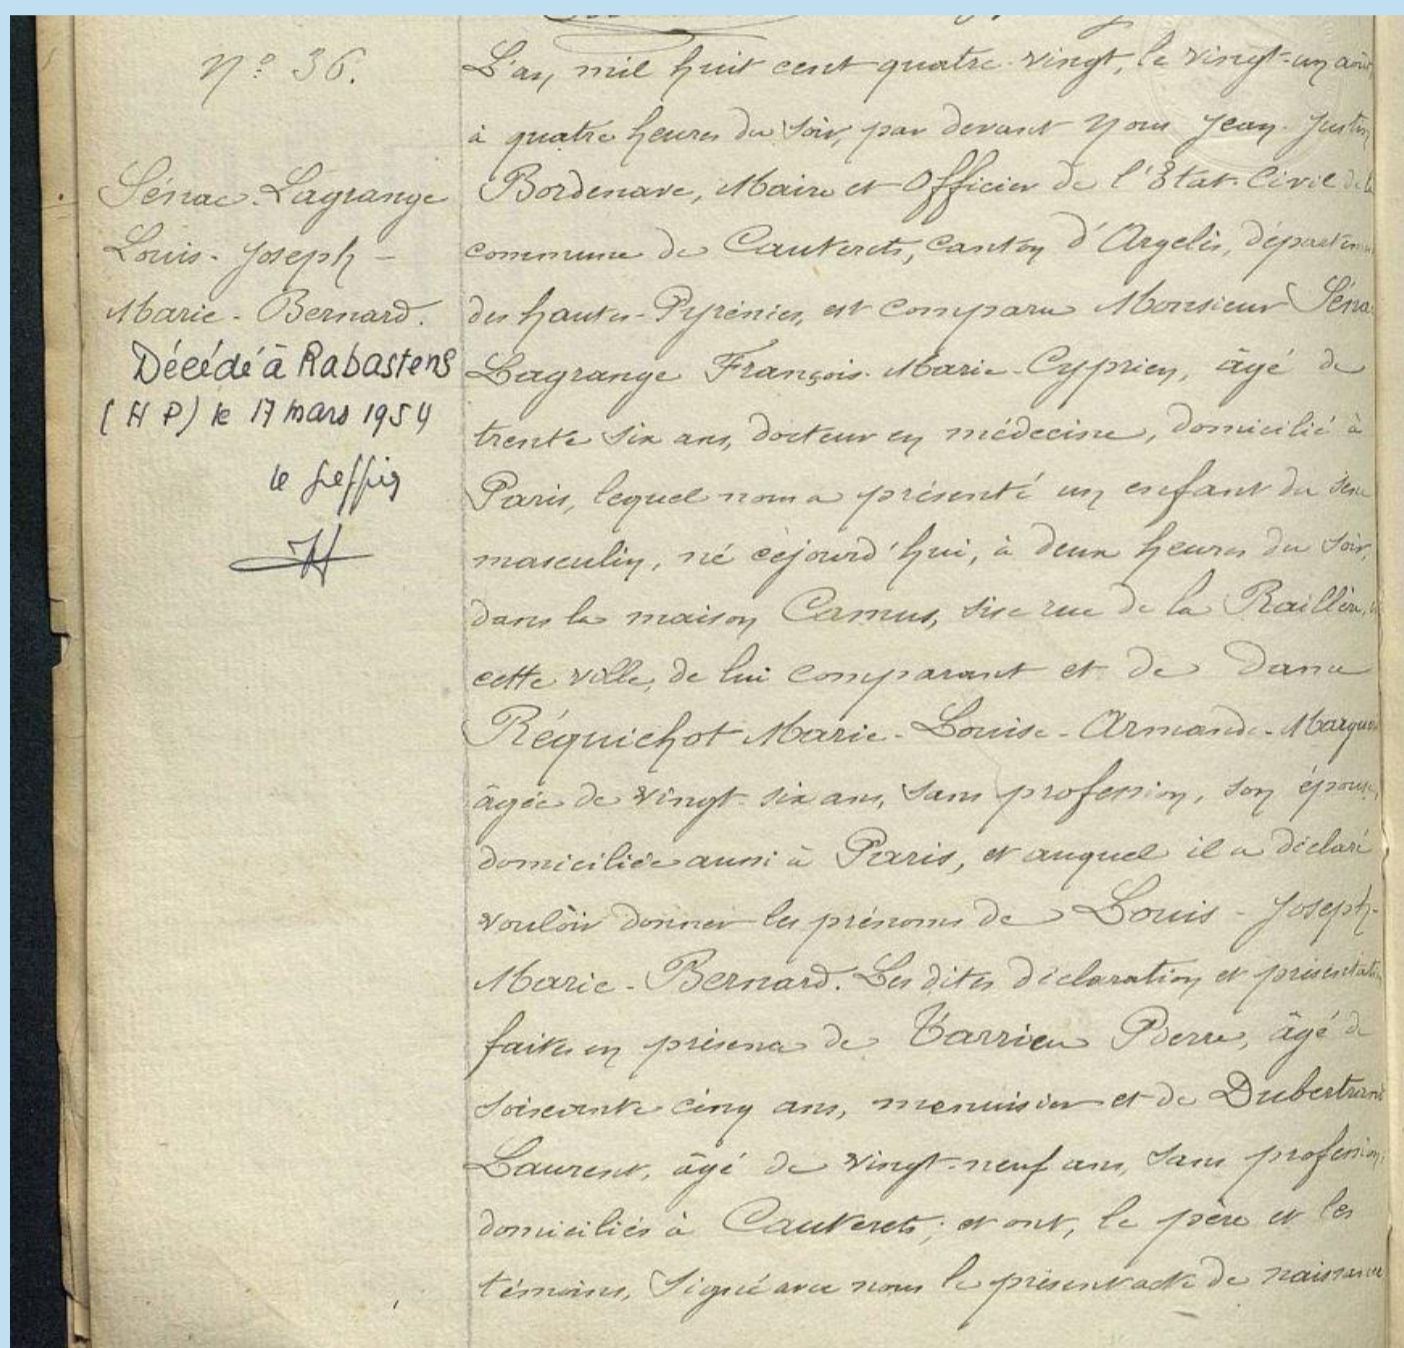 N.º 36.
Sénac-Lagrange
Louis-Joseph-
Marie-Bernard.
Décédé à Rabastens
(H P) le 17 mars 1954
le
L'an mil huit cent quatre-vingt, le vingt-un août
à quatre heures du soir, par devant Nous Jean-Justin
Bordenave, Maire et Officier de l'Etat-Civil de la
commune de Cauterets, canton d'Argelès, départem
des hautes-Pyrénées, est comparu Monsieur Séna
Lagrange François-Marie-Cyprien, âgé de
trente six ans, docteur en médecine, domicilié à
Paris, lequel nous a présenté un enfant du sexe
masculin, né cejourd'hui, à deux heures du soir,
dans la maison Camus, sise rue de la Raillère,
cette ville, de lui comparant et de dame
Réquichot Marie-Louise-Armande-Margue
âgée de vingt-six ans, sans profession, son épouse,
domiciliée aussi à Paris, et auquel il a déclaré
vouloir donner les prénoms de Louis-Joseph-
Marie-Bernard. Les dites déclaration et présentation
faites en présence de Tarrieu Pierre, âgé de
soixante cinq ans, menuisier et de Dubertrand
Laurent, âgé de vingt-neuf ans, sans profession,
domiciliés à Cauterets; et ont, le père et les
témoins, signé avec nous le présent acte de naissance